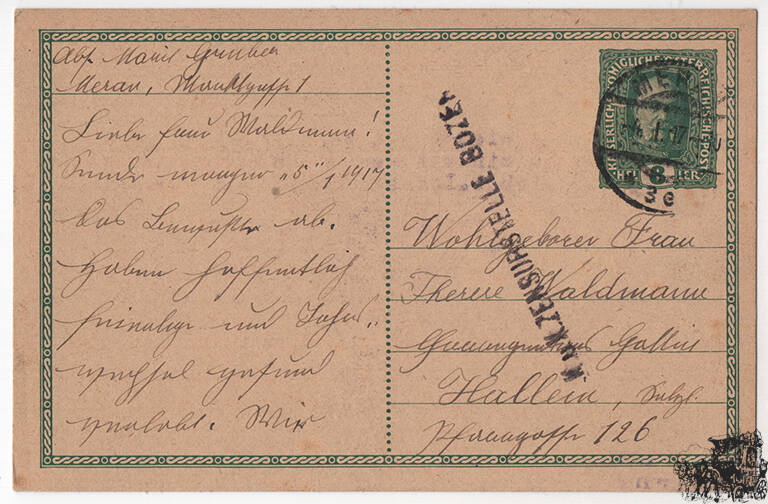 Abs. Marie Gruber
Meran, Marktgasse 1
Liebe Frau Waldmann!
Sende morgen "5"/1 1917
das Bewußte ab.
Haben hoffentlich
Feiertage und Jahres-
wechsel gesund
verlebt. Wir
KAISERLICHE KÖNIGLICHE ÖSTERREICHISCHE POST
8
HELLER
MER
4. I. 17
K.u.K. ZENSURSTELLE BOZEN
Wohlgeborer Frau
Therese Waldmann
Hallein, Salzb.
Pfarrgasse 126